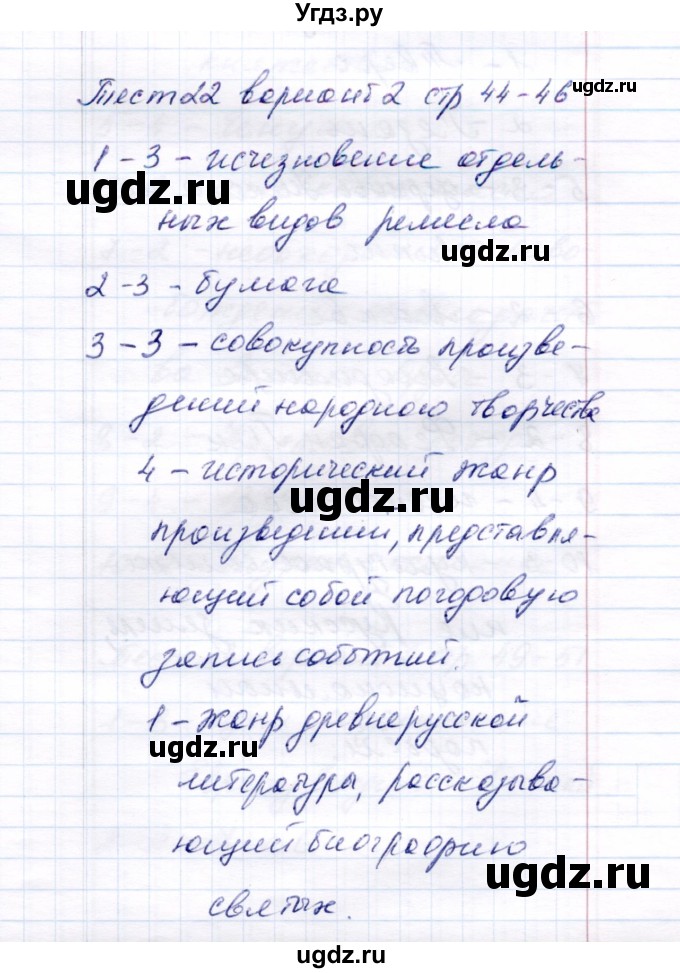 Угдз.ру
Тест 22 вариант 2 стр 44-46
ugdz.ru
1-3 - исчезновение отдель-
ugdz.ru
ных видов ремесла
ugdz.ru
2-3 - бумага
3-3 - совокупность произве-
дений народного творчества
4 - исторический жанр
ugdz.ru
произведений, представля-
ющий собой погодовую
запись событий.
1 - Жанр древнерусской
ugdz.ru
литературы, рассказыва-
ющий биографию
ugdz.ru
святых.
ugdz.ru